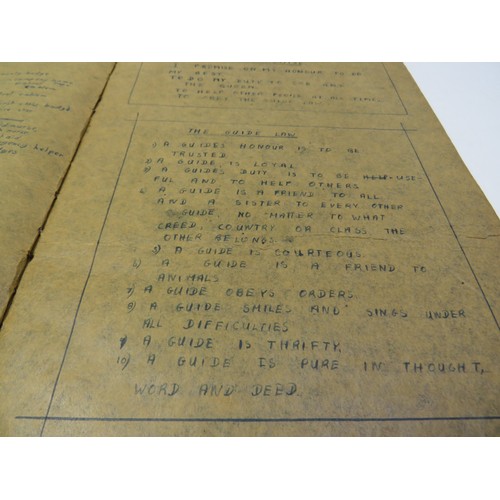 I PROMISE ON MY HONOUR TO DO
MY BEST
TO DO MY DUTY TO GOD AND
THE QUEEN,
TO HELP OTHER PEOPLE AT ALL TIMES,
TO OBEY THE GUIDE LAW.
THE GUIDE LAW
1) A GUIDES HONOUR IS TO BE
TRUSTED
2) A GUIDE IS LOYAL
3) A GUIDES DUTY IS TO BE USE-
FUL AND TO HELP OTHERS
4) A GUIDE IS A FRIEND TO ALL
AND A SISTER TO EVERY OTHER
GUIDE, NO MATTER TO WHAT
CREED, COUNTRY OR CLASS THE
OTHER BELONGS
5) A GUIDE IS COURTEOUS.
6) A GUIDE IS A FRIEND TO
ANIMALS
7) A GUIDE OBEYS ORDERS
8) A GUIDE SMILES AND SINGS UNDER
ALL DIFFICULTIES
9 A GUIDE IS THRIFTY.
10) A GUIDE IS PURE IN THOUGHT,
WORD AND DEED.